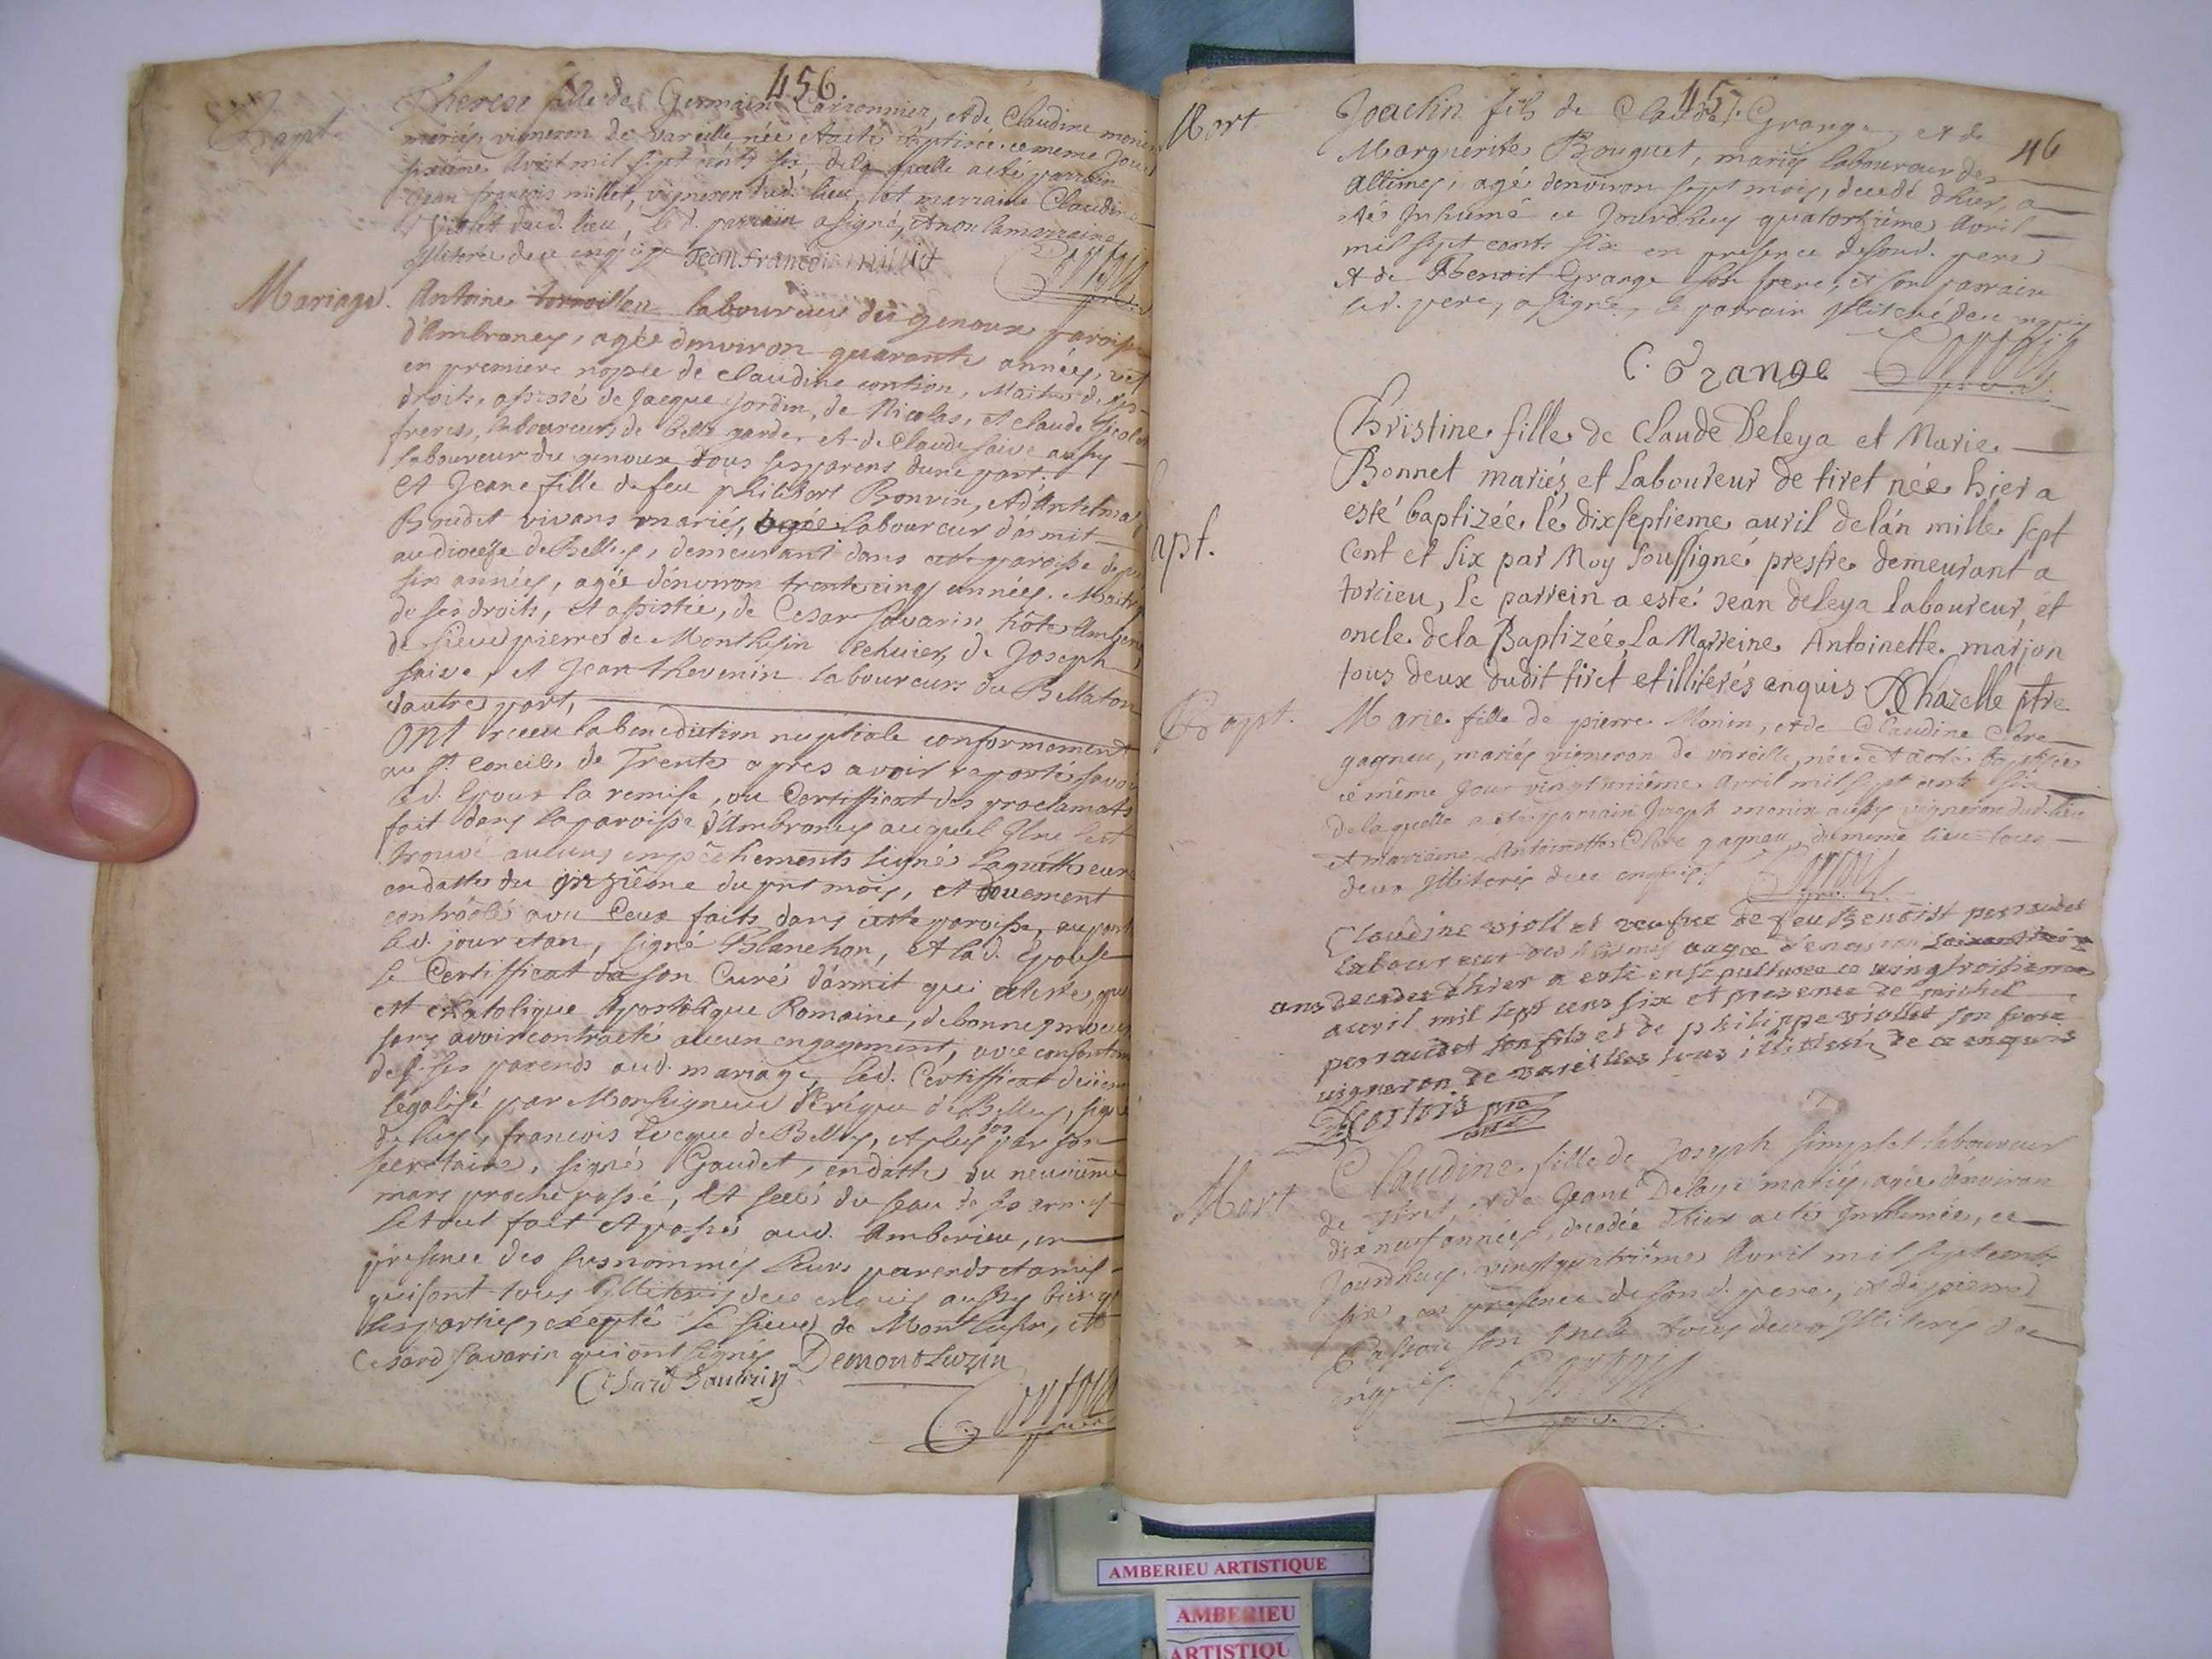 456
Bapt.
Therese fille de Germain Carronnier, et de Claudine monin
mariés, vigneron de vareille, née et a eté baptisée ce meme jour
sixième avril mil sept cents six, de laquelle a eté parrain
Jean françois millet, vigneron dud. lieu, et marraine Claudine
Violet dud. lieu, led. parrain a signé, et non la marraine
illiterée de ce enquise Jean francois millet
Mariage.
Antoine laboureur du genoux paroisse
d'Ambroney, agée denviron quarante années, vef
en premiere nopce de claudine contion, Maitre de ses
droits, assisté de Jacque jordin, de Nicolas, et claude
freres, laboureurs de Belle garde, et de Claude saive aussy
laboureur du genoux tous ses parens dune part.
Et Jeane fille de feu philibert Bonvin, et d'Antelma
Boudet vivans mariés, agée laboureur d'armit
au diocèse de Belley, demeurant dans cette paroisse depuis
six années, agée d'énviron trente cinq années. Maitresse
de ses droits, et assistée, de Cesar Savarin hôte
de sieur pierre de Monthesin Echuier, de Joseph
saive, et Jean thevenin laboureurs du Bellaton
dautre part,
ont receu la benediction nuptiale conformement
au st. concile de Trente apres avoir raporté savoir
led. Epoux la remise, ou Certifficat des proclamats
fait dans la paroisse d'Ambroney auquel Il ne sest
trouvé aucuns empêchements signé
en datte du onzième du pnt mois, et douement
contrôlés avec Ceux faits dans ceste paroisse,
led. jour et an, signé Blanchon, et lad. Epouse
le Certifficat de son Curé d'armit qui atteste que
est Catolique Apostolique Romaine, de bonnes moeurs
sans avoir contracté aucun engagement, avec consentement
de ses parends aud. mariage, led. Certifficat
légalisé par Monseigneur l'Evéque de Belley, signé
de luy, francois Evecque de Belley, et plus bas par son
secretaire, signé Gaudet, en datte du neuvième
mars proche passé, et scelé du seau de ses armes
le tout fait et passé aud. Amberieu, en
présence des susnommés leurs parends et amis
qui sont tous illiterés de ce enquis aussy bien que
les parties, excepté le sieur de Montlusin, et
Cesard Savarin qui ont signés Demontluzin
Cesard Sauarin
457
46
Mort
Joachin fils de Claude Grange, et de
Marguerite Bouguet, mariés laboureur des
Allimes, agé denviron sept mois, decedé d'hier, a
etés Inhumé ce jourdhuy quatorzième avril
mil sept cents six en presence de son d. pere
et de Benoit Grange son frere, et son parrain
led. pere, a signé, le parrain illiteré de ce enquis
C. Grange
apt.
Christine fille de Claude Deleya et Marie
Bonnet mariés et Laboureur de tiret née hier a
esté baptizée le dixseptieme auril de lán mille sept
cent et six par Moy soussigné prestre demeurant a
torcieu, le parrein a esté jean deleya laboureur, et
oncle de la Baptizée La Marreine Antoinette marjon
tous deux dudit tiret et illiterés enquis Dhazelle ptre
Bapt.
Marie fille de pierre Monin, et de Claudine Chre
gagneu, mariés vigneron de vareille, née et a eté baptisée
ce même jour vingt unième avril mil sept cents six
de laquelle a eté parrain Joseph monin aussy vigneron dud. lieu
et marraine Antoinette Chre gagneu, du meme lieu tous
deux illiterés de ce enquis
Claudine viollet veufve de feu Benoist perraudet
laboureur des allimes aagee denuiron
ans decedee dhier a esté ensepulturee ce vingtroisieme
auril mil sept cens six et presence de michel
perraudet son fils et de philippe viollet son frere
uigneron de vareilles tous illiteres de ce enquis
Mort
Claudine fille de Joseph simplet laboureur
de tiret, et de Jeane Delaye mariés, agée denviron
dix neuf années, decedée d'hier a eté Inhumée, ce
jourdhuy vingt quatrième avril mil sept cents
six, en presence de son d. pere, et de pierre
Cassou son tous deux illiteres de ce
enquis.
AMBERIEU ARTISTIQUE
AMBERIEU
ARTISTIQU